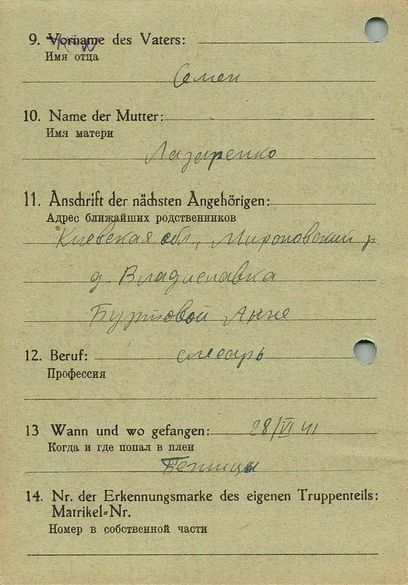 9. Vorname des Vaters:
Имя отца
Семен
10. Name der Mutter:
Имя матери
Лазаренко
11. Anschrift der nächsten Angehörigen:
Адрес ближайших родственников
Киевская обл, Мироновский р.
д. Владиславка
Анне
12. Beruf: слесарь
Профессия
13 Wann und wo gefangen: 28/VI 41
Когда и где попал в плен
14. Nr. der Erkennungsmarke des eigenen Truppenteils:
Matrikel-Nr.
Номер в собственной части